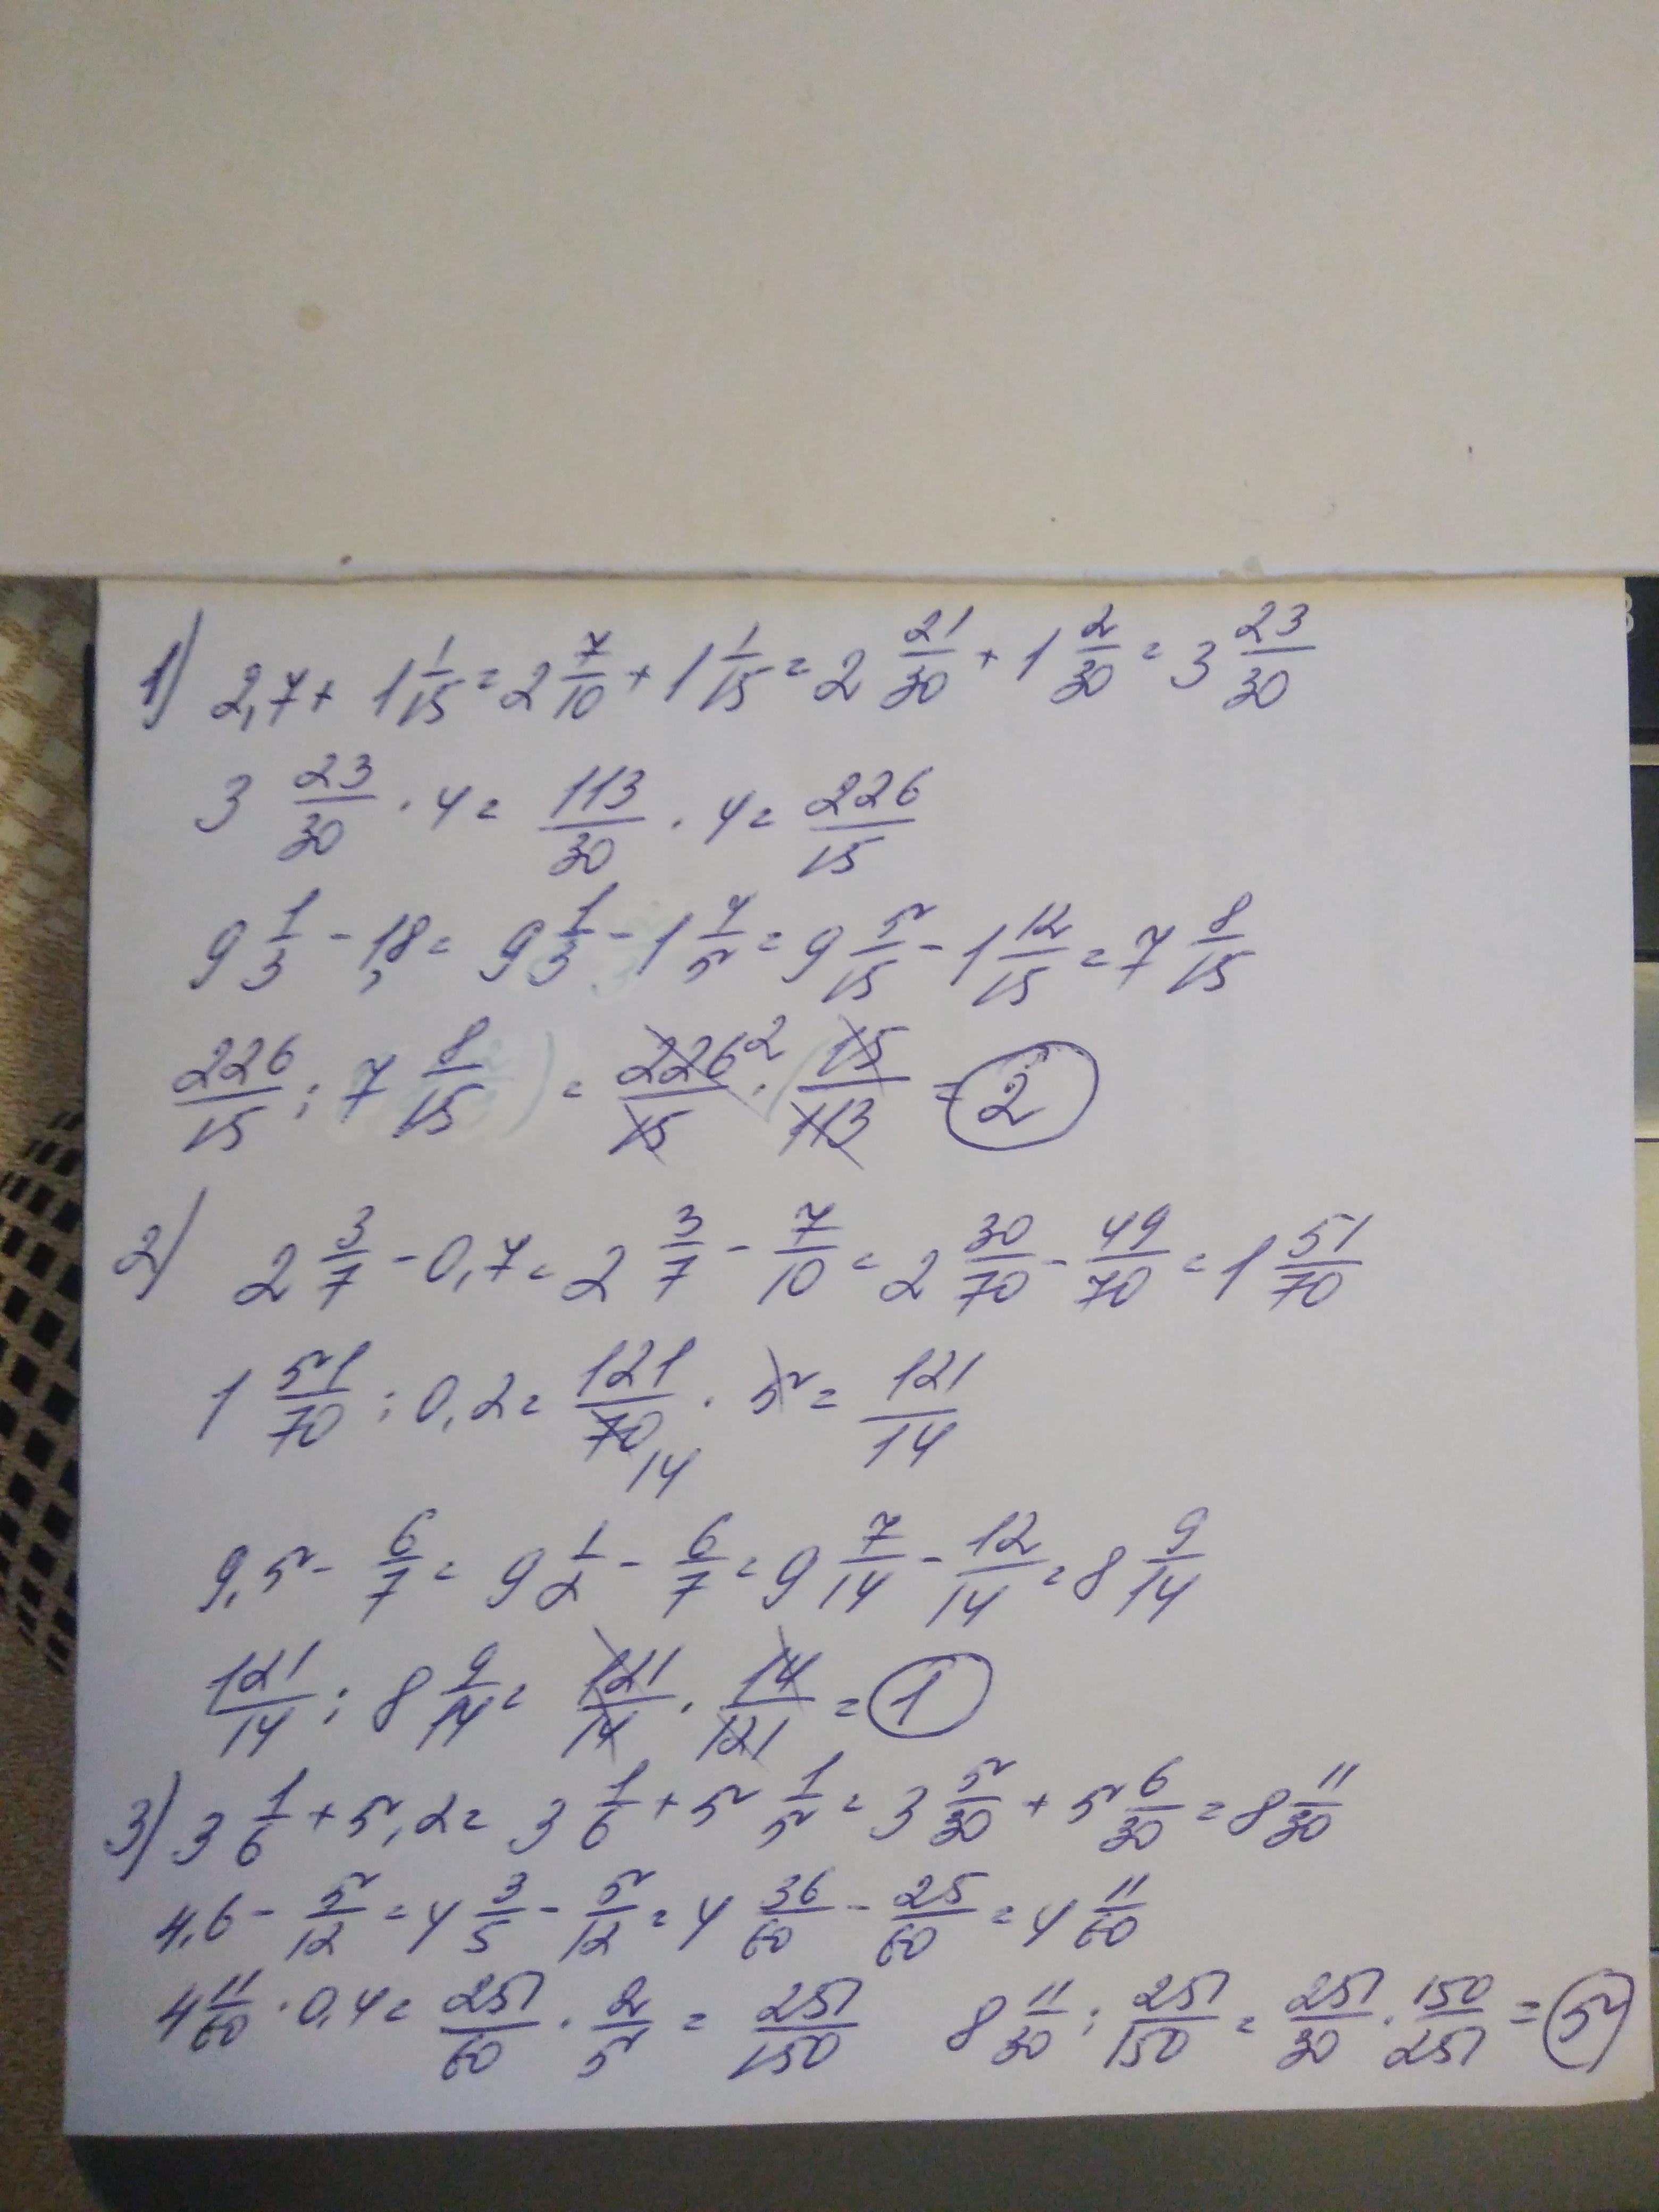 1) 2,7 + 1 1/15 = 2 7/10 + 1 1/15 = 2 21/30 + 1 2/30 = 3 23/30
3 23/30 · 4 = 113/30 · 4 = 226/15
9 1/3 - 1,8 = 9 1/3 - 1 4/5 = 9 5/15 - 1 12/15 = 7 8/15
226/15 : 7 8/15 = 226/15 2 · 15/113 = 2
2) 2 3/7 - 0,7 = 2 3/7 - 7/10 = 2 30/70 - 49/70 = 1 51/70
1 51/70 : 0,2 = 121/70 14 · 5 = 121/14
9,5 - 6/7 = 9 1/2 - 6/7 = 9 7/14 - 12/14 = 8 9/14
121/14 : 8 9/14 = 121/14 · 14/121 = 1
3) 3 1/6 + 5,2 = 3 1/6 + 5 1/5 = 3 5/30 + 5 6/30 = 8 11/30
4,6 - 5/12 = 4 3/5 - 5/12 = 4 36/60 - 25/60 = 4 11/60
4 11/60 · 0,4 = 251/60 · 2/5 = 251/150 8 11/30 : 251/150 = 251/30 · 150/251 = 5